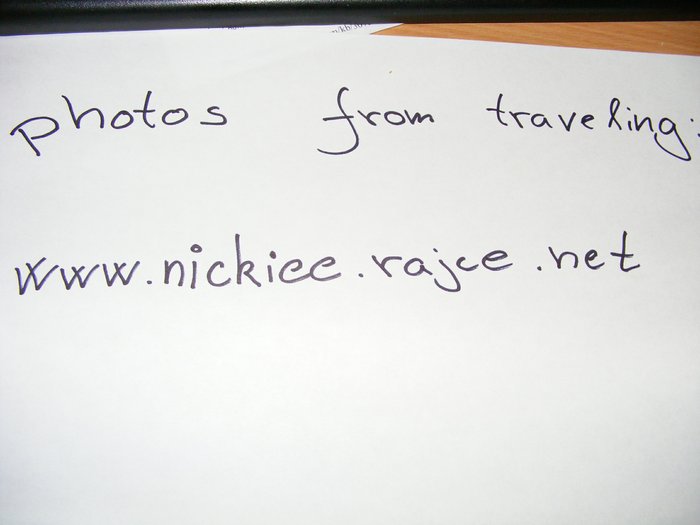 photos from traveling:
www.nickiee.rajce.net